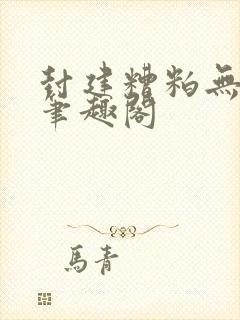 封建糟粕無
筆趣閣
馬青